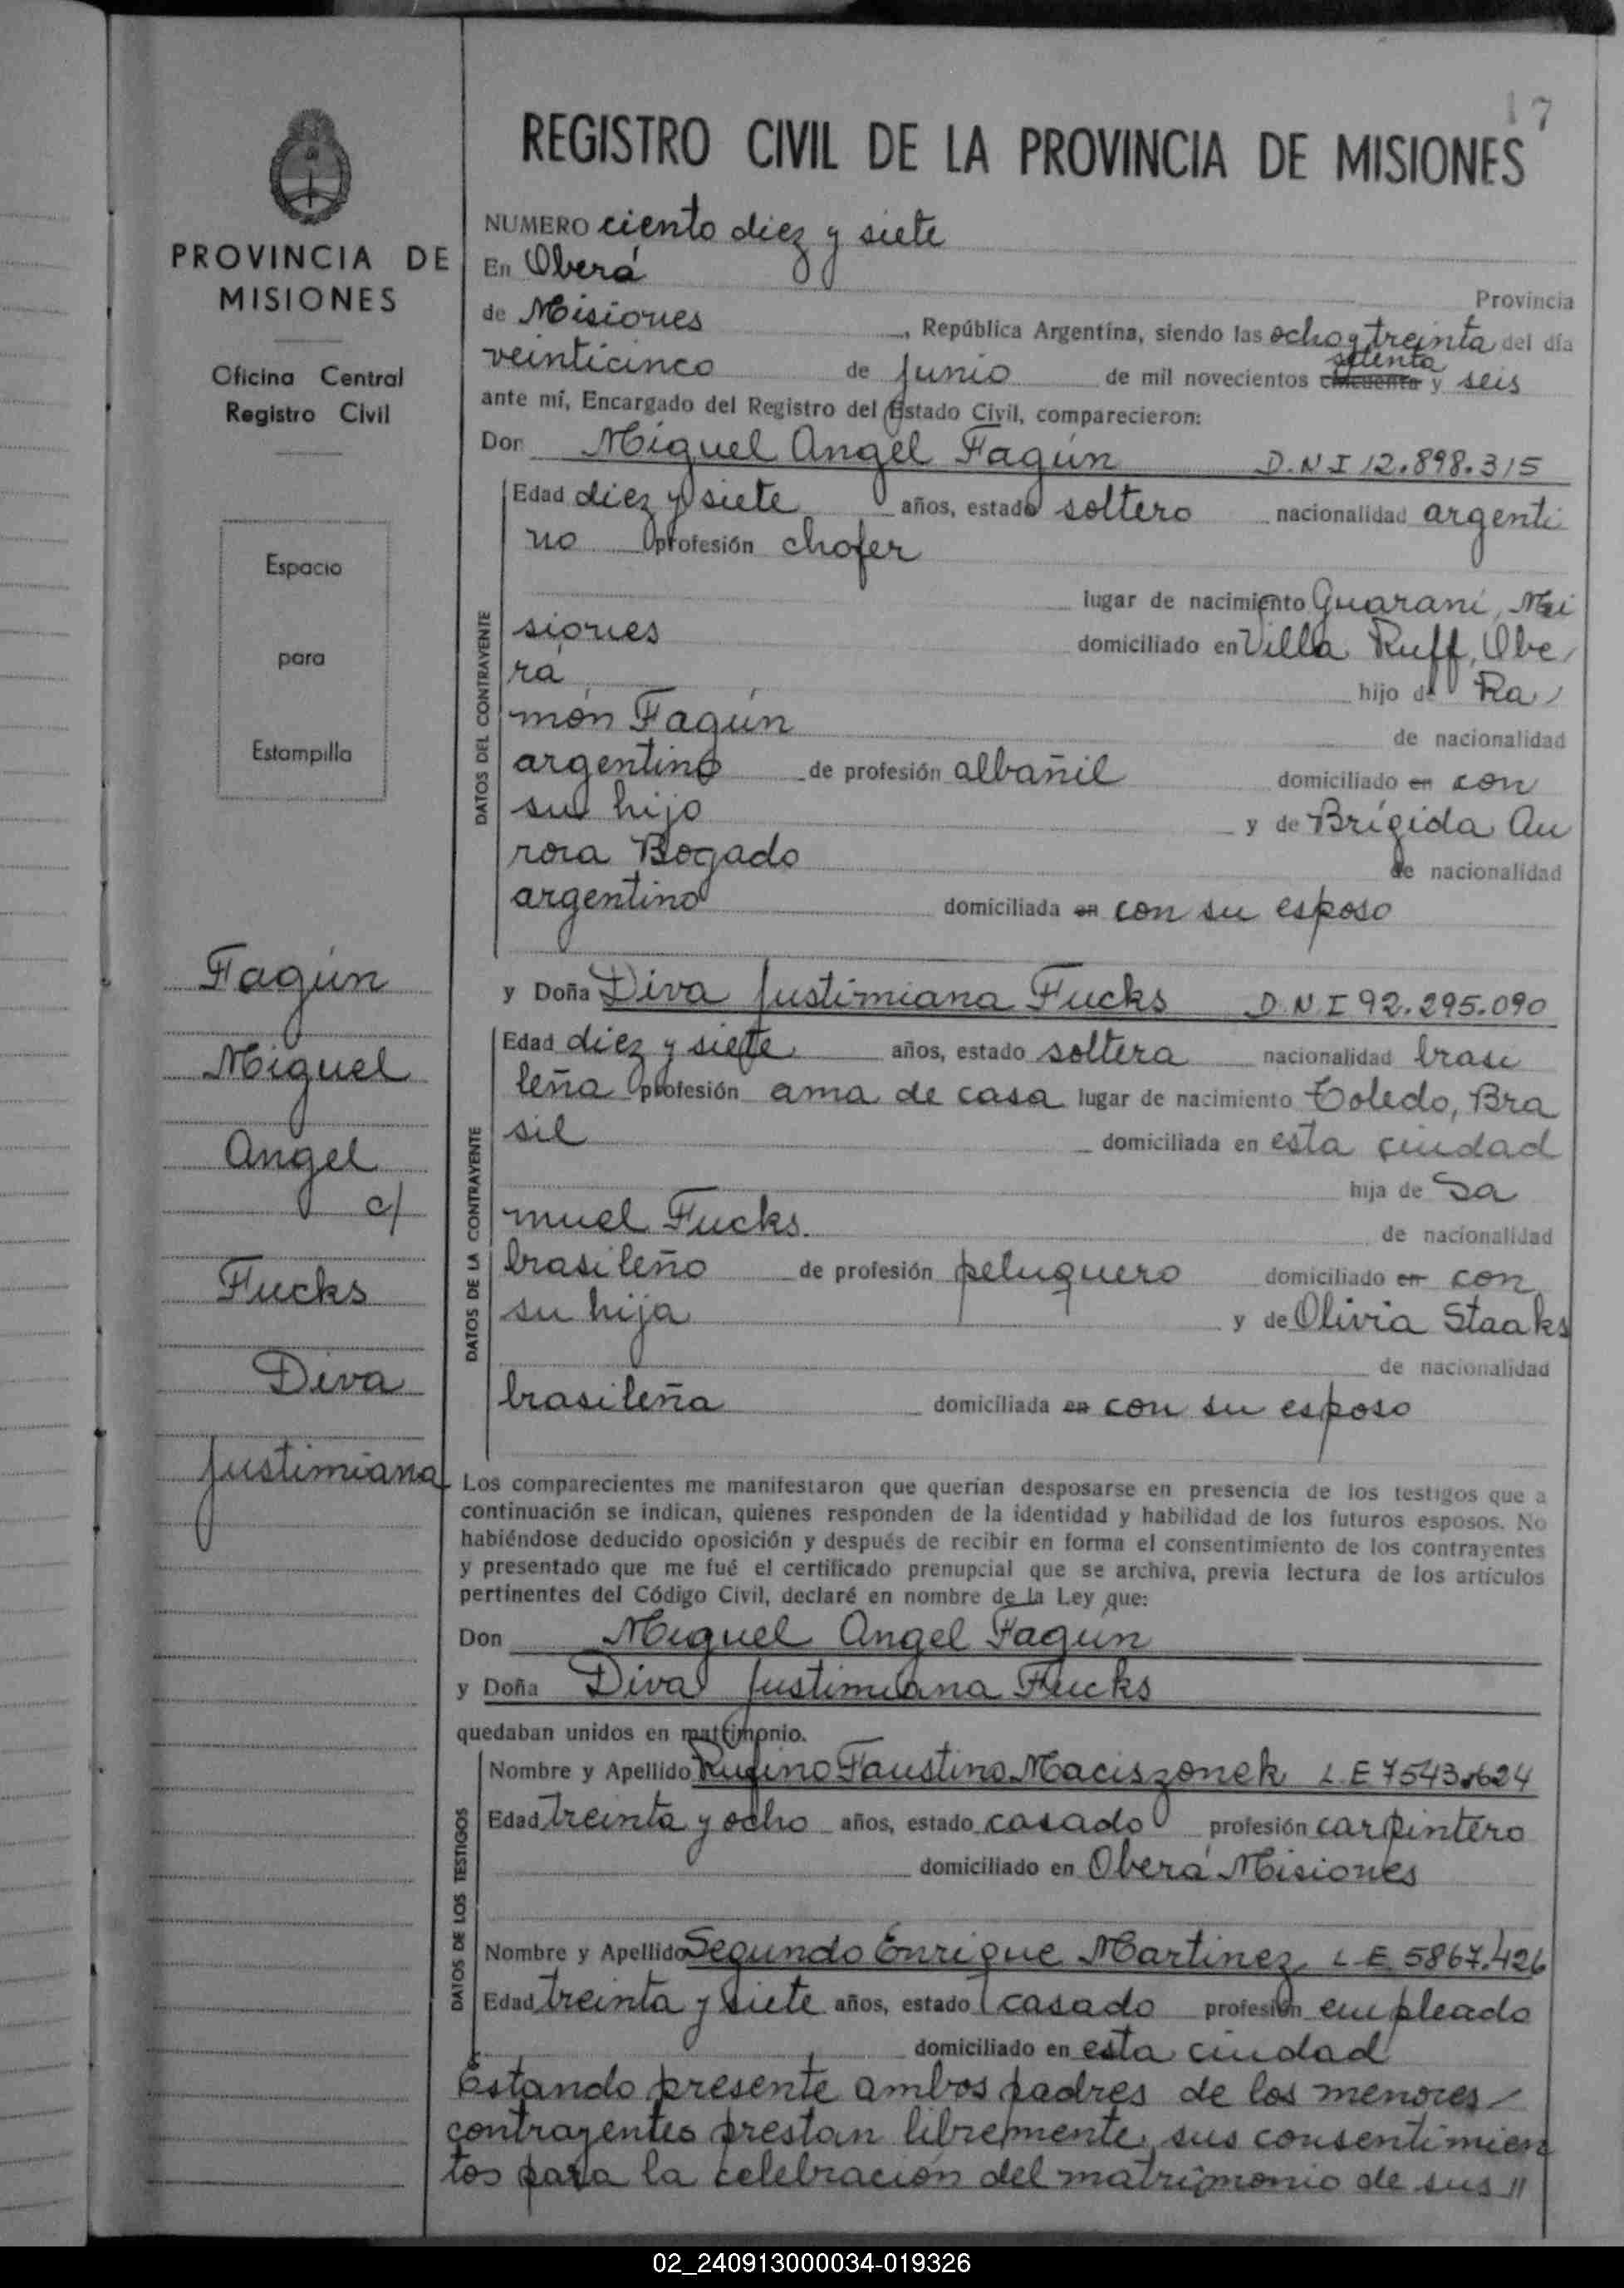 17
REGISTRO CIVIL DE LA PROVINCIA DE MISIONES
PROVINCIA DE
MISIONES
Oficina Central
Registro Civil
Espacio
para
Estampilla
Fagún
Miguel
Angel
c/
Fucks
Diva
Justimiana
NUMERO ciento diez y siete
En Oberá
Provincia
de Misiones, República Argentina, siendo las ocho y treinta del día
setenta
veinticinco de junio de mil novecientos cincuenta y seis
ante mí, Encargado del Registro del Estado Civil, comparecieron:
Don Miguel Angel Fagún D.N.I 12.898.315
DATOS DEL CONTRAYENTE
Edad diez y siete años, estado soltero nacionalidad argenti
no profesión chofer
lugar de nacimiento Guaraní, Mi
siones domiciliado en Villa Ruff, Obe
rá hijo de Ra
món Fagún de nacionalidad
argentino de profesión albañil domiciliado en con
su hijo y de Brígida Au
rora Bogado de nacionalidad
argentino domiciliada en con su esposo
y Doña Diva Justimiana Fucks D.N.I 92.295.090
DATOS DE LA CONTRAYENTE
Edad diez y siete años, estado soltera nacionalidad brasi
leña profesión ama de casa lugar de nacimiento Toledo, Bra
sil domiciliada en esta ciudad
hija de Sa
muel Fucks. de nacionalidad
brasileño de profesión peluquero domiciliado en con
su hija y de Olivia Staaks
de nacionalidad
brasileña domiciliada en con su esposo
Los comparecientes me manifestaron que querían desposarse en presencia de los testigos que a
continuación se indican, quienes responden de la identidad y habilidad de los futuros esposos. No
habiéndose deducido oposición y después de recibir en forma el consentimiento de los contrayentes
y presentado que me fué el certificado prenupcial que se archiva, previa lectura de los artículos
pertinentes del Código Civil, declaré en nombre de la Ley que:
Don Miguel Angel Fagun
y Doña Diva Justimiana Fucks
quedaban unidos en matrimonio.
DATOS DE LOS TESTIGOS
Nombre y Apellido Rufino Faustino Maciszonek L.E 7543.624
Edad treinta y ocho años, estado casado profesión carpintero
domiciliado en Oberá Misiones
Nombre y Apellido Segundo Enrique Martinez L.E. 5867.426
Edad treinta y siete años, estado casado profesión empleado
domiciliado en esta ciudad
Estando presente ambos padres de los menores
contrayentes prestan libremente sus consentimien
tos para la celebración del matrimonio de sus //
02_240913000034-019326